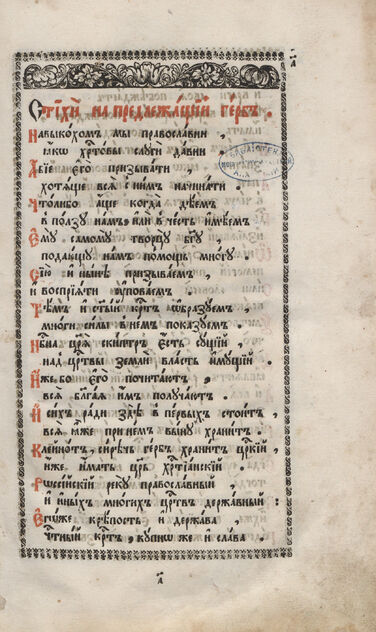 Стїхѝ на предлежа́щїй ге́рбъ .
Навыко́хомъ мы̀ правосла́внїи ,
ꙗ҆́кѡ хрⷭ҇то́вы слꙋгѝ да́внїи .
А҆́бїе є҆го̀ призыва́ти ,
хотѧ́ще всѧ̑ с̾ни́мъ начина́ти .
Что́либо а҆́ще когда̀ дѣ́емъ
в̾ по́лзꙋ на́мъ , и҆лѝ в̾че́сть и҆мѣ́емъ
Є҆мꙋ̀ самомꙋ̀ творцꙋ̀ бг҃ꙋ ,
подаю́щꙋ на́мъ по́мощь мно́гꙋ .
Сїѐ и҆ ны́нѣ призыва́емъ ,
и҆ воспрїѧ́ти ᲂу҆пова́емъ .
Тѣ́мъ и҆ ст҃ы́й крⷭ҇тъ ѡ҆бразꙋ́емъ ,
мно́ги си́лы в̾не́мъ пока́зꙋемъ .
Нб҃на царѧ̀ ски́птръ є҆́сть сꙋ́щїй ,
над̾ црⷭ҇твы землѝ вла́сть и҆мꙋ́щїй .
И҆̀же бо є҆го̀ почита́ютъ ,
всѧ̑ бл҃га́ѧ и҆̀мъ полꙋча́ютъ .
И҆ си́хъ ра́ди здѣ̀ в̾ пе́рвыхъ стои́тъ ,
всѧ̑ ꙗ҆̀же при не́мъ вы́нꙋ храни́тъ .
Клейно́тъ , си́рѣчь ге́рбъ храни́тъ цр҃кїй ,
и҆́же и҆́мать цр҃ь хрⷭ҇тїа́нскїй .
Рѡссі́йскїй рекꙋ̀ правосла́вный ,
и҆ и҆ны́хъ мно́гихъ црⷭ҇твъ держа́вный :
Є҆гѡ́же крѣ́пость и҆ держа́ва ,
чⷭ҇тны́й крⷭ҇тъ , кꙋ́пнѡ же и҆ сла́ва .